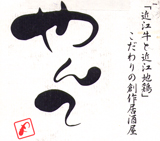 「近江牛と近江地鶏」
こだわりの創作居酒屋
やんて